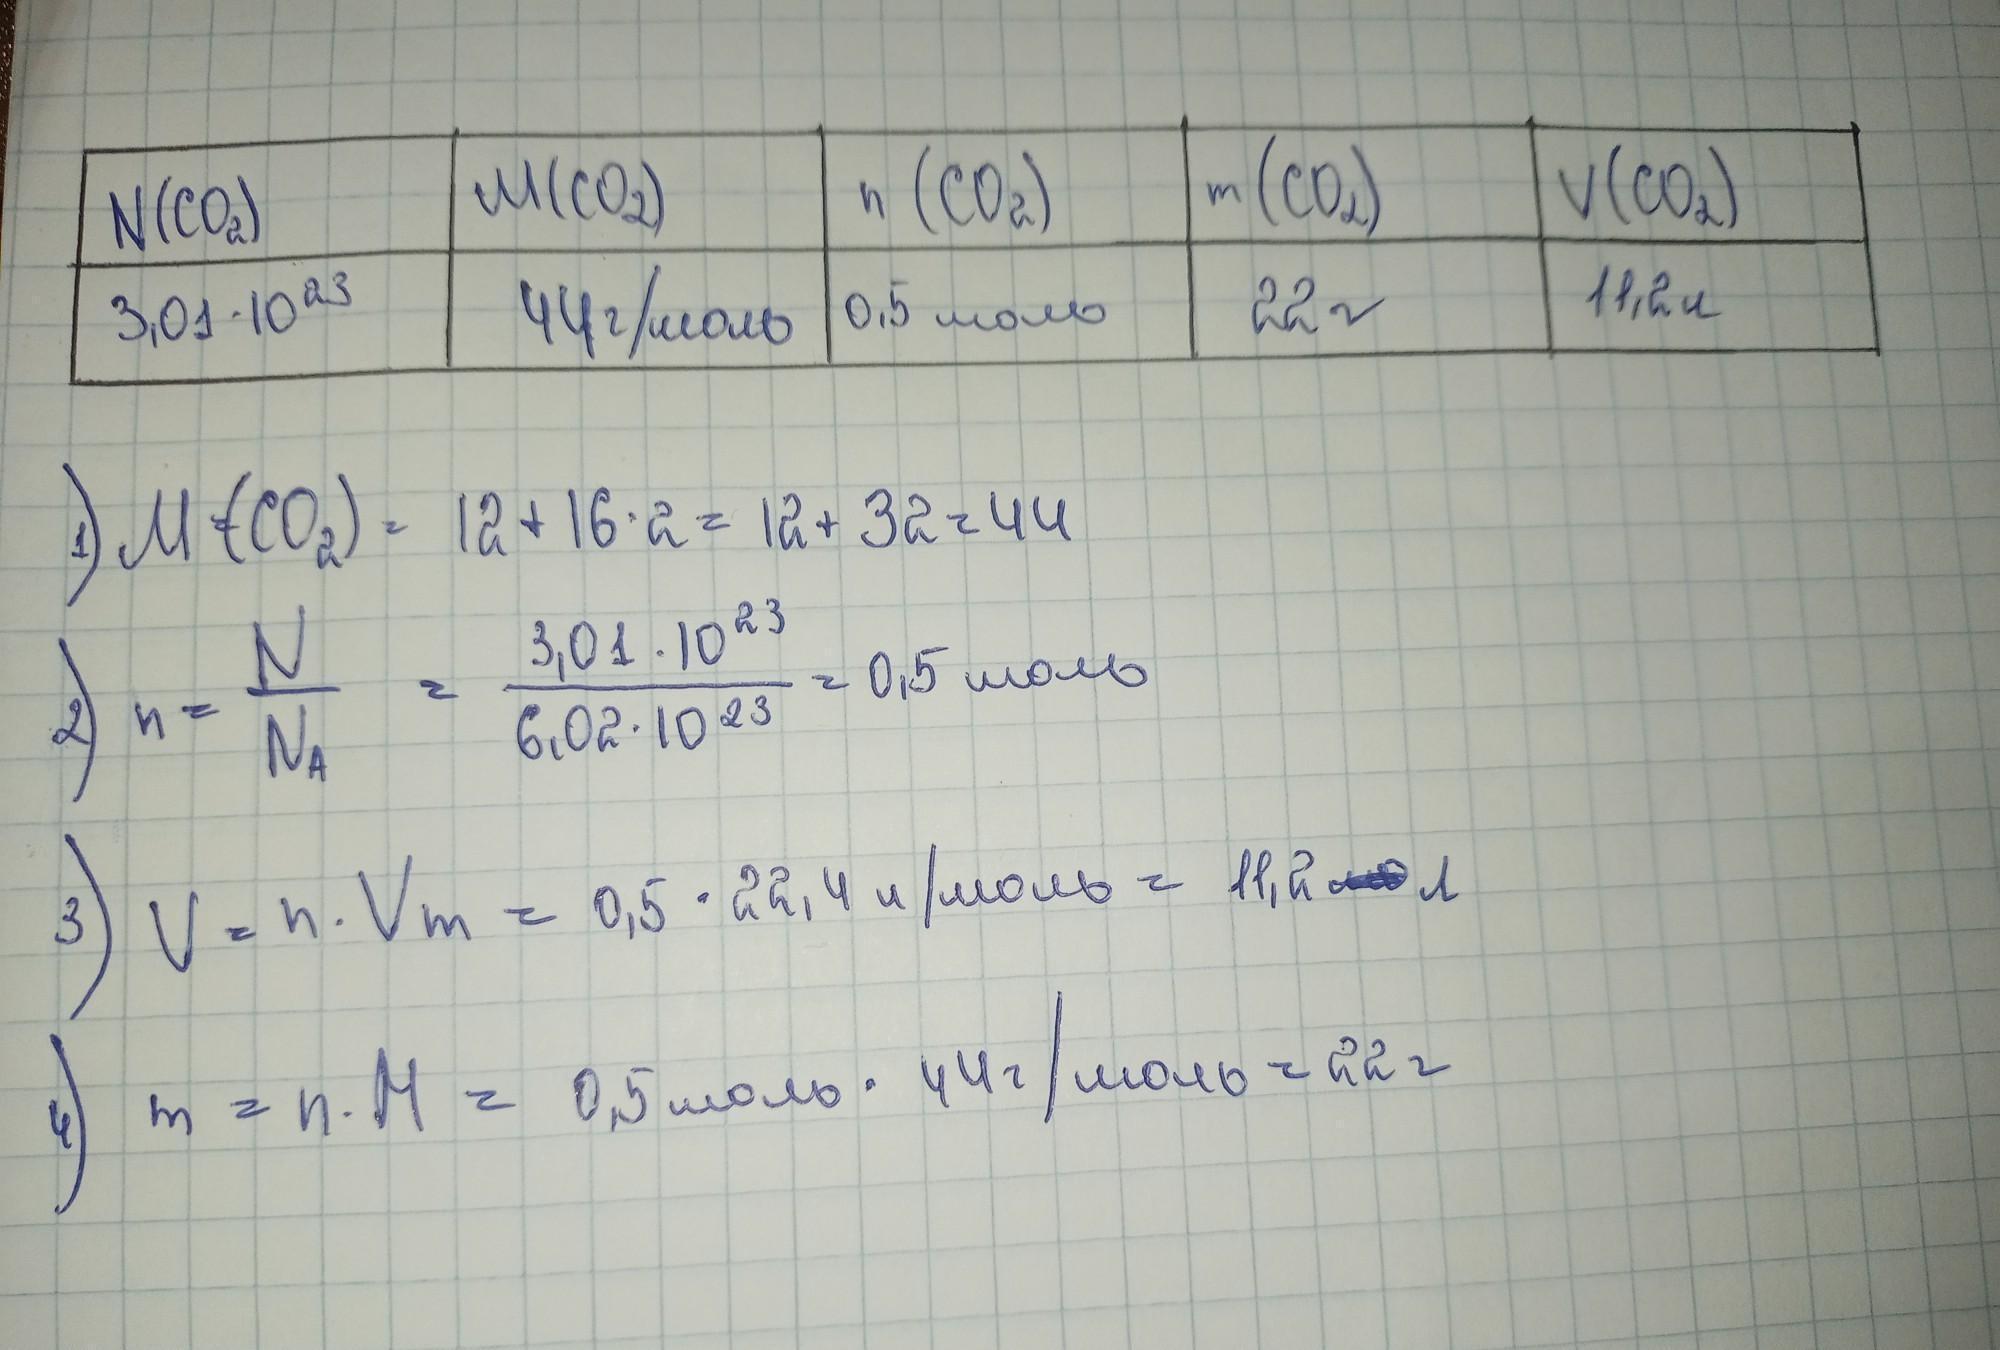 N(CO₂) M(CO₂) n (CO₂) m (CO₂) V(CO₂)
3,01·10²³ 44г/моль 0,5 моль 22 г 11,2л
1) M (CO₂) = 12 + 16·2 = 12 + 32 = 44
2) n = N/N_A = 3,01·10²³/6,02·10²³ = 0,5 моль
3) V = n·Vm = 0,5 · 22,4 л/моль = 11,2 л
4) m = n·M = 0,5 моль · 44г/моль = 22 г